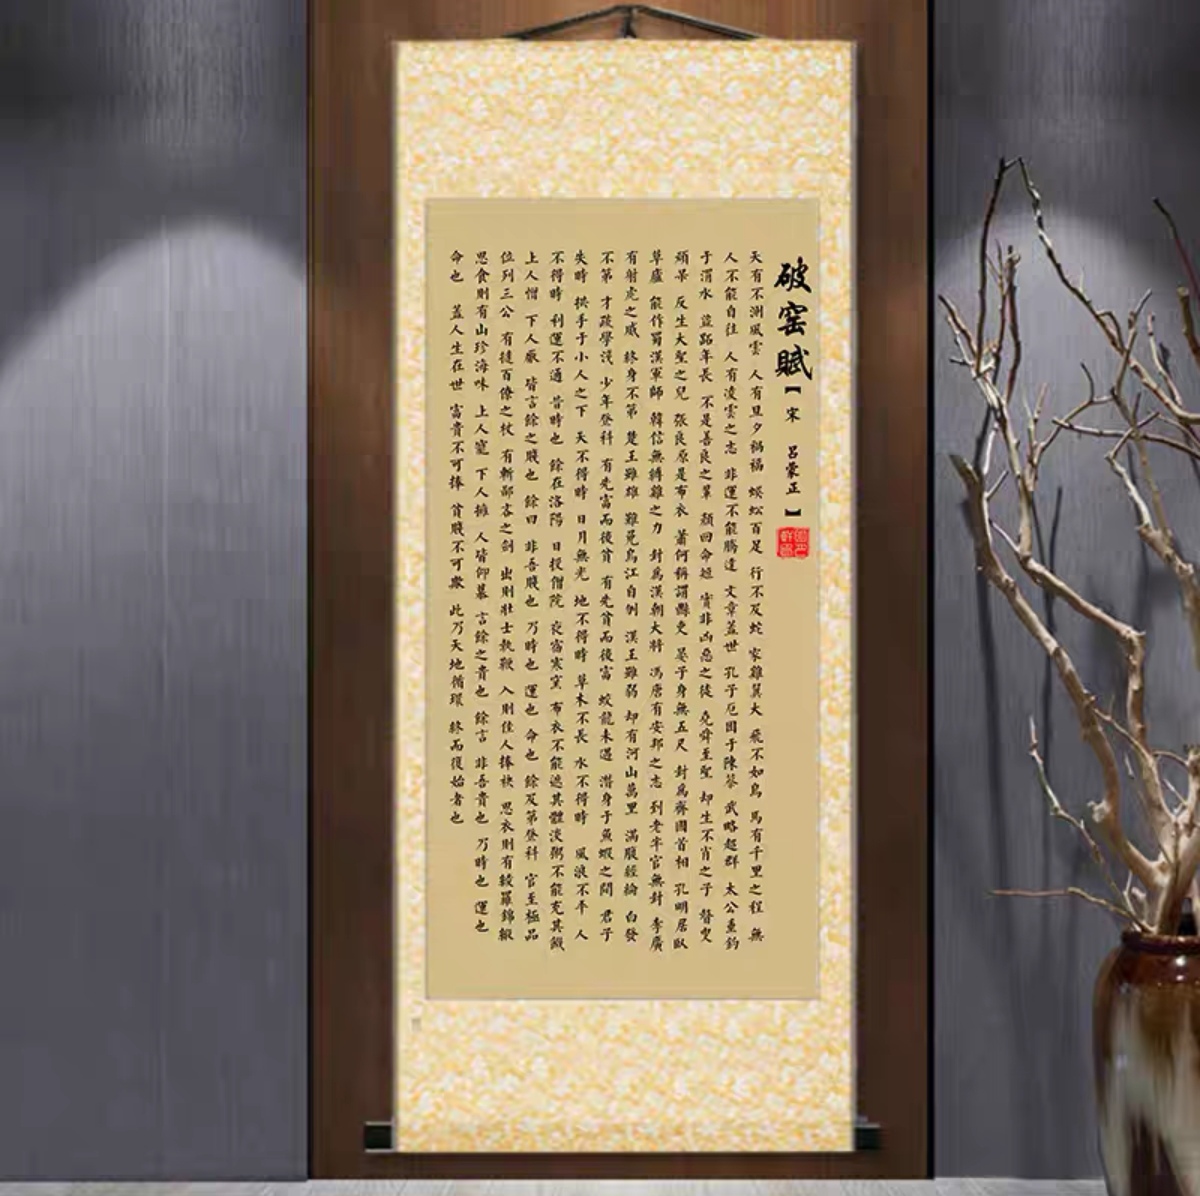 破窑賦【宋 吕蒙正】
天有不測風雲 人有旦夕禍福 蜈蚣百足 行不及蛇 家雞翼大 飛不如鳥 馬有千里之程 無
人不能自往 人有凌雲之志 非運不能騰達 文章蓋世 孔子厄困于陳蔡 武略超群 太公垂釣
于渭水 盜跖年長 不是善良之輩 顏回命短 實非凶惡之徒 堯舜至聖 却生不肖之子 瞽叟
頑呆 反生大聖之兒 張良原是布衣 蕭何稱謂縣吏 晏子身無五尺 封爲齊國首相 孔明居臥
草廬 能作蜀漢軍師 韓信無縛雞之力 封爲漢朝大將 馮唐有安邦之志 到老半官無封 李廣
有射虎之威 終身不第 楚王雖雄 難免烏江自刎 漢王雖弱 却有河山萬里 滿腹經綸 白發
不第 才疏學淺 少年登科 有先富而後貧 有先貧而後富 蛟龍未遇 潛身于魚蝦之間 君子
失時 拱手于小人之下 天不得時 日月無光 地不得時 草木不長 水不得時 風浪不平 人
不得時 利運不通 昔時也 餘在洛陽 日投僧院 夜宿寒窑 布衣不能遮其體 淡粥不能充其饑
上人憎 下人厭 皆言餘之賤也 餘曰 非吾賤也 乃時也 運也 命也 餘及第登科 官至極品
位列三公 有撻百僚之杖 有斬鄙吝之劍 出則壯士執鞭 入則佳人捧袂 思衣則有綾羅錦緞
思食則有山珍海味 上人寵 下人擁 人皆仰慕 言餘之貴也 餘言 非吾貴也 乃時也 運也
命也 蓋人生在世 富貴不可捧 貧賤不可欺 此乃天地循環 終而復始者也